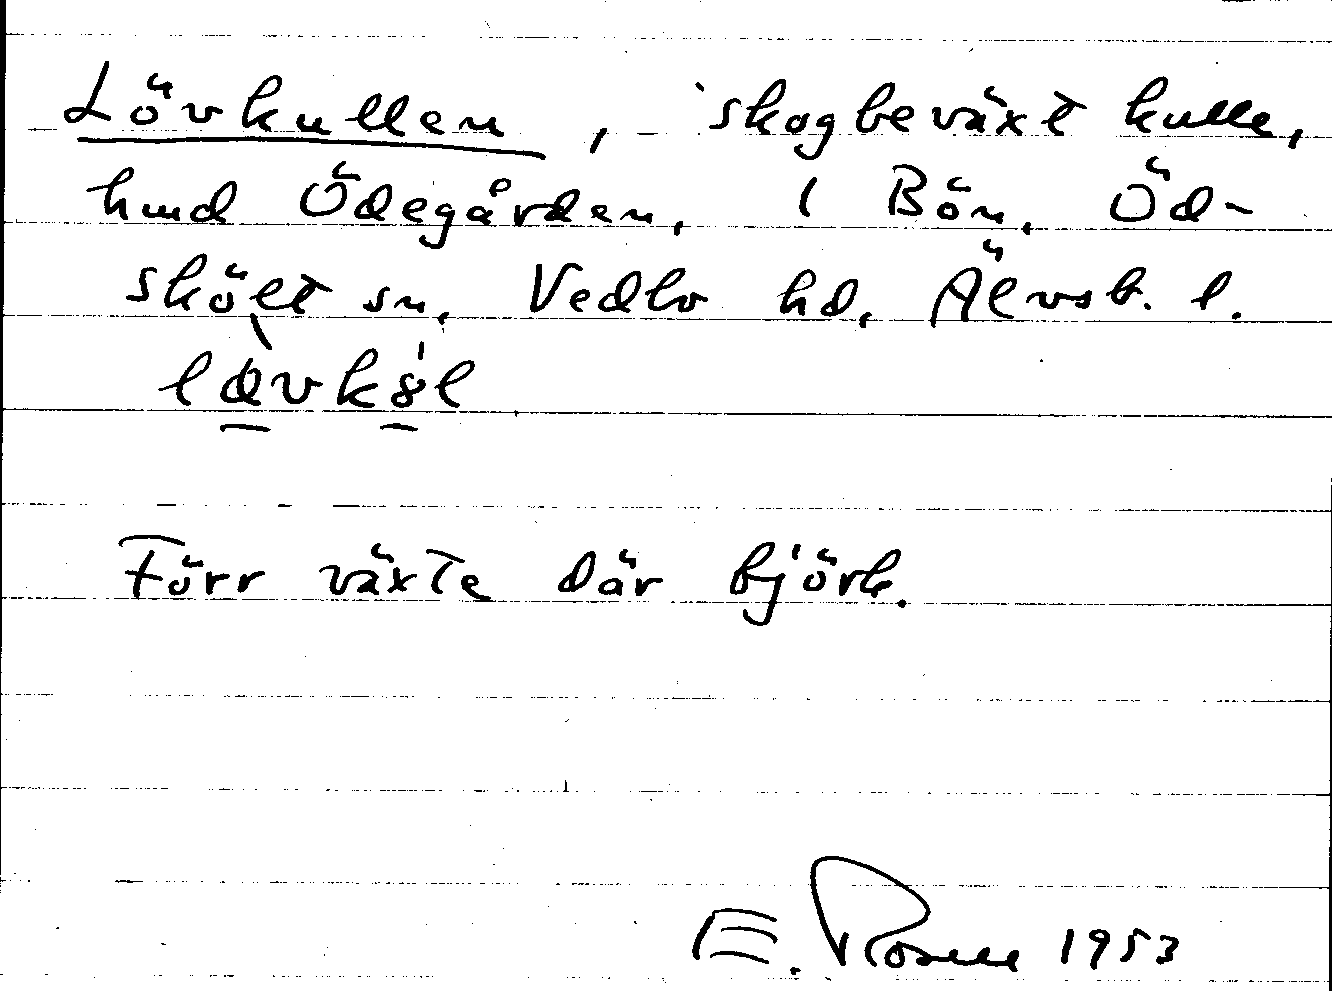 Lövkullen, skogbeväxt kulle,
hmd Ödegården, 1 Bön, Öd-
skölt sn, Vedbo hd, Älvsb. l.
Förr växte där björk.
E. 1953